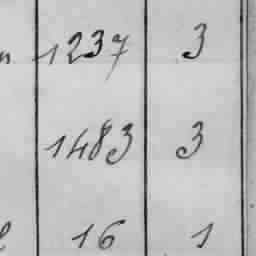 1237 3
1483 3
16 1